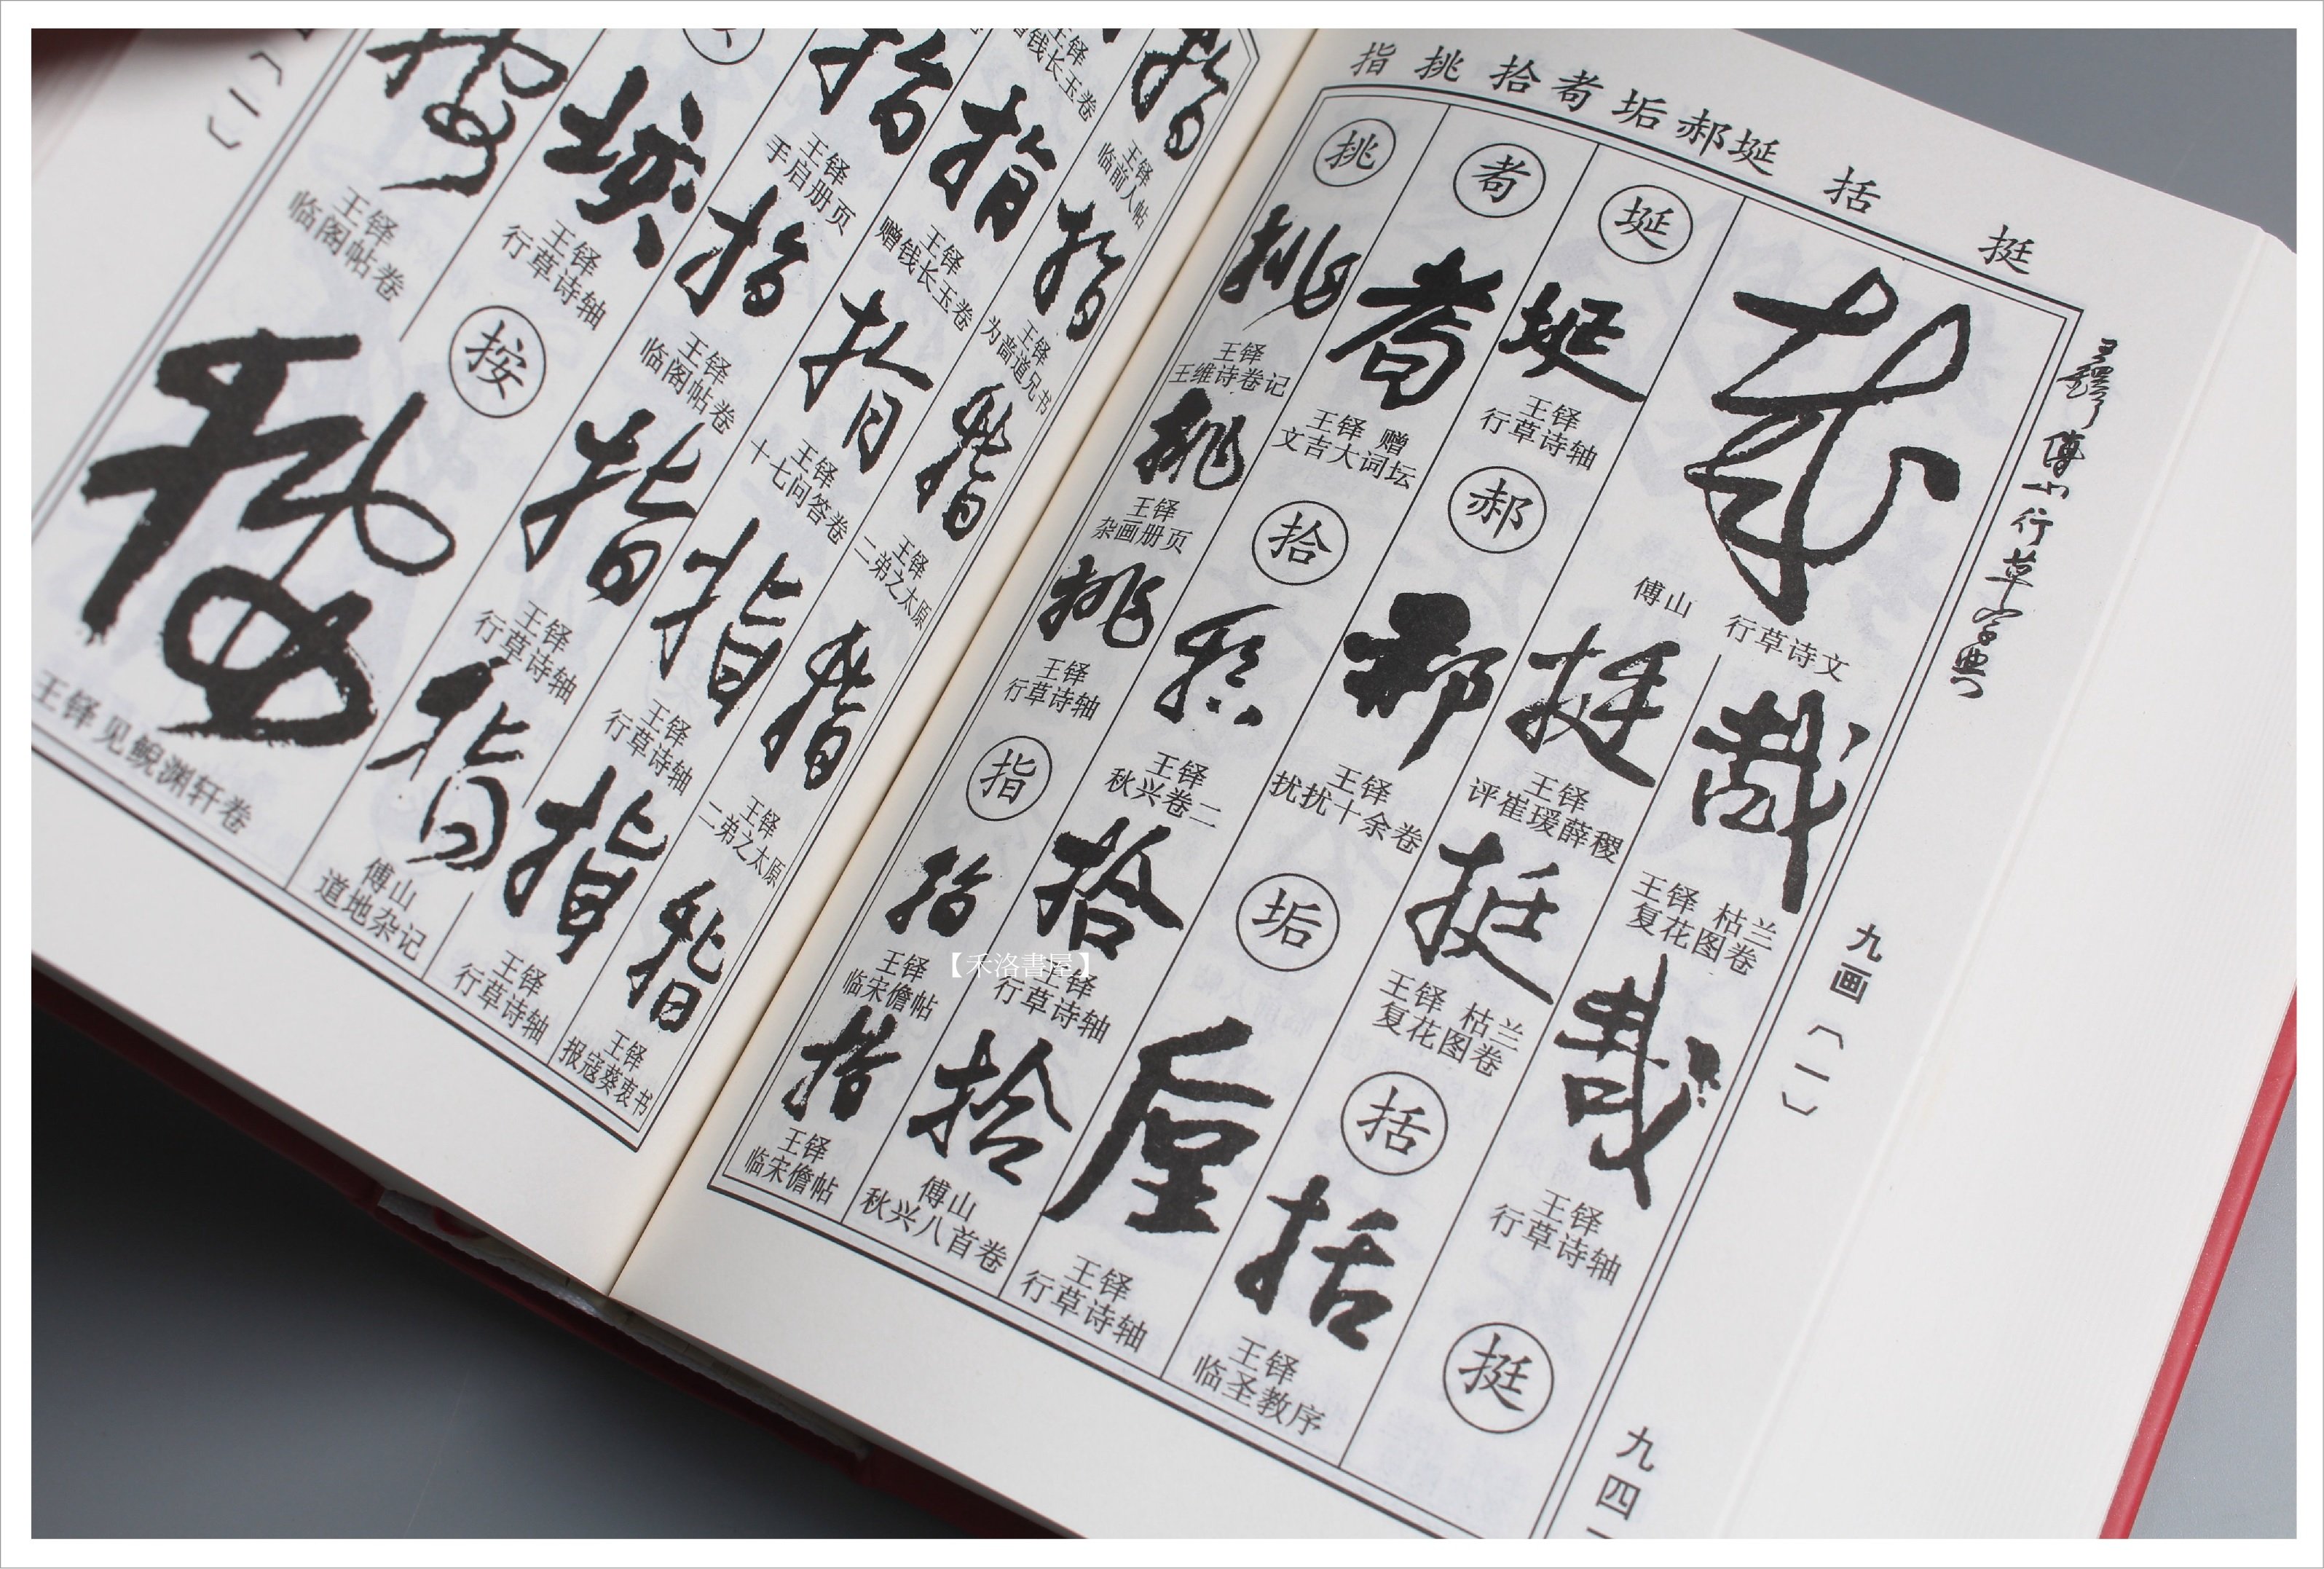 挺 括 埏 郝 垢 耇 拾 挑 指
王鐸傅山行草字典
九画〔一〕
九四一
傅山 行草诗文
哉
王铎 枯兰复花图卷
哉
王铎 行草诗轴
挺
埏
埏
王铎 行草诗轴
挺
王铎 评崔瑗薛稷
挺
王铎 枯兰复花图卷
括
括
王铎 临圣教序
耇
耇
王铎 赠文吉大词坛
郝
郝
王铎 扰扰十余卷
垢
垢
王铎 行草诗轴
挑
挑
王铎 王维诗卷记
挑
王铎 杂画册页
挑
王铎 行草诗轴
拾
拾
王铎 秋兴卷二
拾
王铎 行草诗轴
拾
傅山 秋兴八首卷
指
指
王铎 临宋儋帖
指
王铎 临宋儋帖
指
王铎 临前人帖
指
王铎 为啬道兄书
指
王铎 二弟之太原
指
王铎 二弟之太原
指
王铎 报寇葵衷书
王铎 赠钱长玉卷
指
王铎 赠钱长玉卷
指
王铎 十七问答卷
指
王铎 行草诗轴
指
王铎 行草诗轴
指
王铎 手启册页
指
王铎 临阁帖卷
指
王铎 行草诗轴
指
傅山 道地杂记
王铎 行草诗轴
按
按
王铎 临阁帖卷
按
王铎 见鲵渊轩卷
〔一〕
【禾洛書屋】